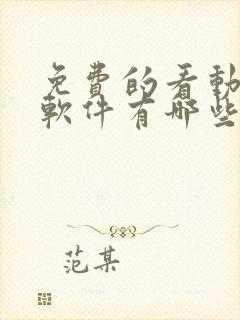 免费的看動
軟件有哪些
范某